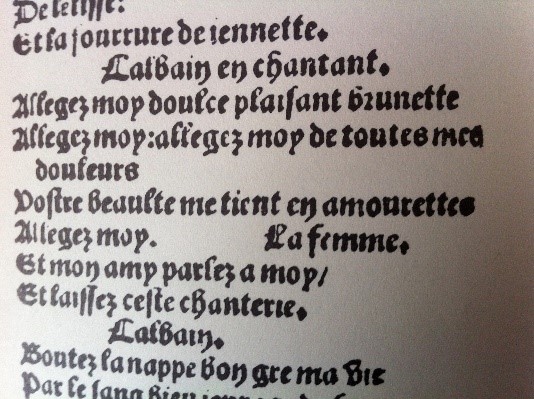 De letisse:
Et sa fourrure de iennette.
Lalbain en chantant.
Allegez moy doulce plaisant brunette
Allegez moy: allegez moy de toutes mes
douleurs
Vostre beaulte me tient en amourettes
Allegez moy. La femme.
Et mon amy parlez a moy/
Et laissez ceste chanterie.
Lalbain.
Boutez la nappe bon gre ma vie
Par le sang bieu